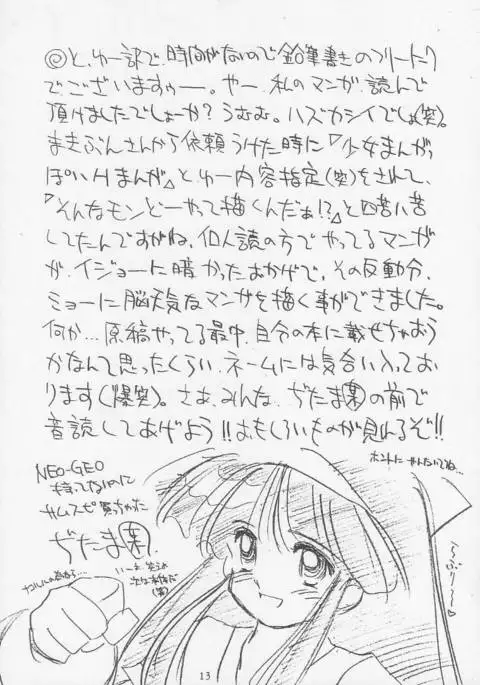 ◎と、ゆー訳で、時間がないので鉛筆書きのフリートーク
でございますぅー。やー、私のマンガ、読んで
頂けましたでしょーか？うむむ。ハズカシイでしょ(笑)。
まきぶんさんから依頼うけた時に『少女まんがっ
ぽいHまんが』とゆー内容指定(笑)をされて、
『そんなモンどーやって描くんだぁ!?』と四苦八苦
してたんですがね、個人誌の方でやってるマンガ
が、イジョーに暗かったおかげで、その反動分、
ミョーに脳天気なマンガを描く事ができました。
何か…原稿やってる最中、自分の本に載せちゃおう
かなんて思ったくらい、ネームには気合い入ってお
ります(爆笑)。さぁ、みんな、ぢたま㊙の前で
音読してあげよう!!おもしろいものが見れるぞ!!
ホントに
NEO-GEO
持ってないのに
サムスピ買っちゃった
ぢたま
(笑)
13